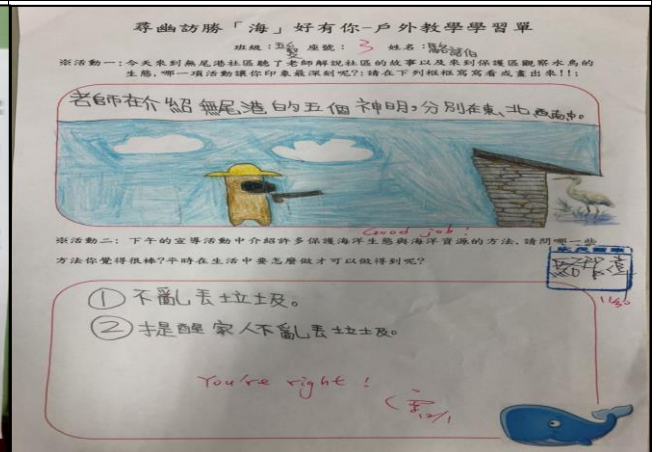 尋幽訪勝「海」好有你-戶外教學學習單
班級：五 座號：3 姓名：
※活動一：今天來到無尾港社區聽了老師解說社區的故事以及來到保護區觀察水鳥的
生態，哪一項活動讓你印象最深刻呢?！請在下列框框寫寫看或畫出來!!：
老師在介紹無尾港的五個神明，分別在東、北西南中。
Good job!
※活動二：下午的宣導活動中介紹許多保護海洋生態與海洋資源的方法，請問哪一些
方法你覺得很棒?平時在生活中要怎麼做才可以做得到呢?
11/30
① 不亂丟垃圾。
② 提醒家人不亂丟垃圾。
You're right!
12/1